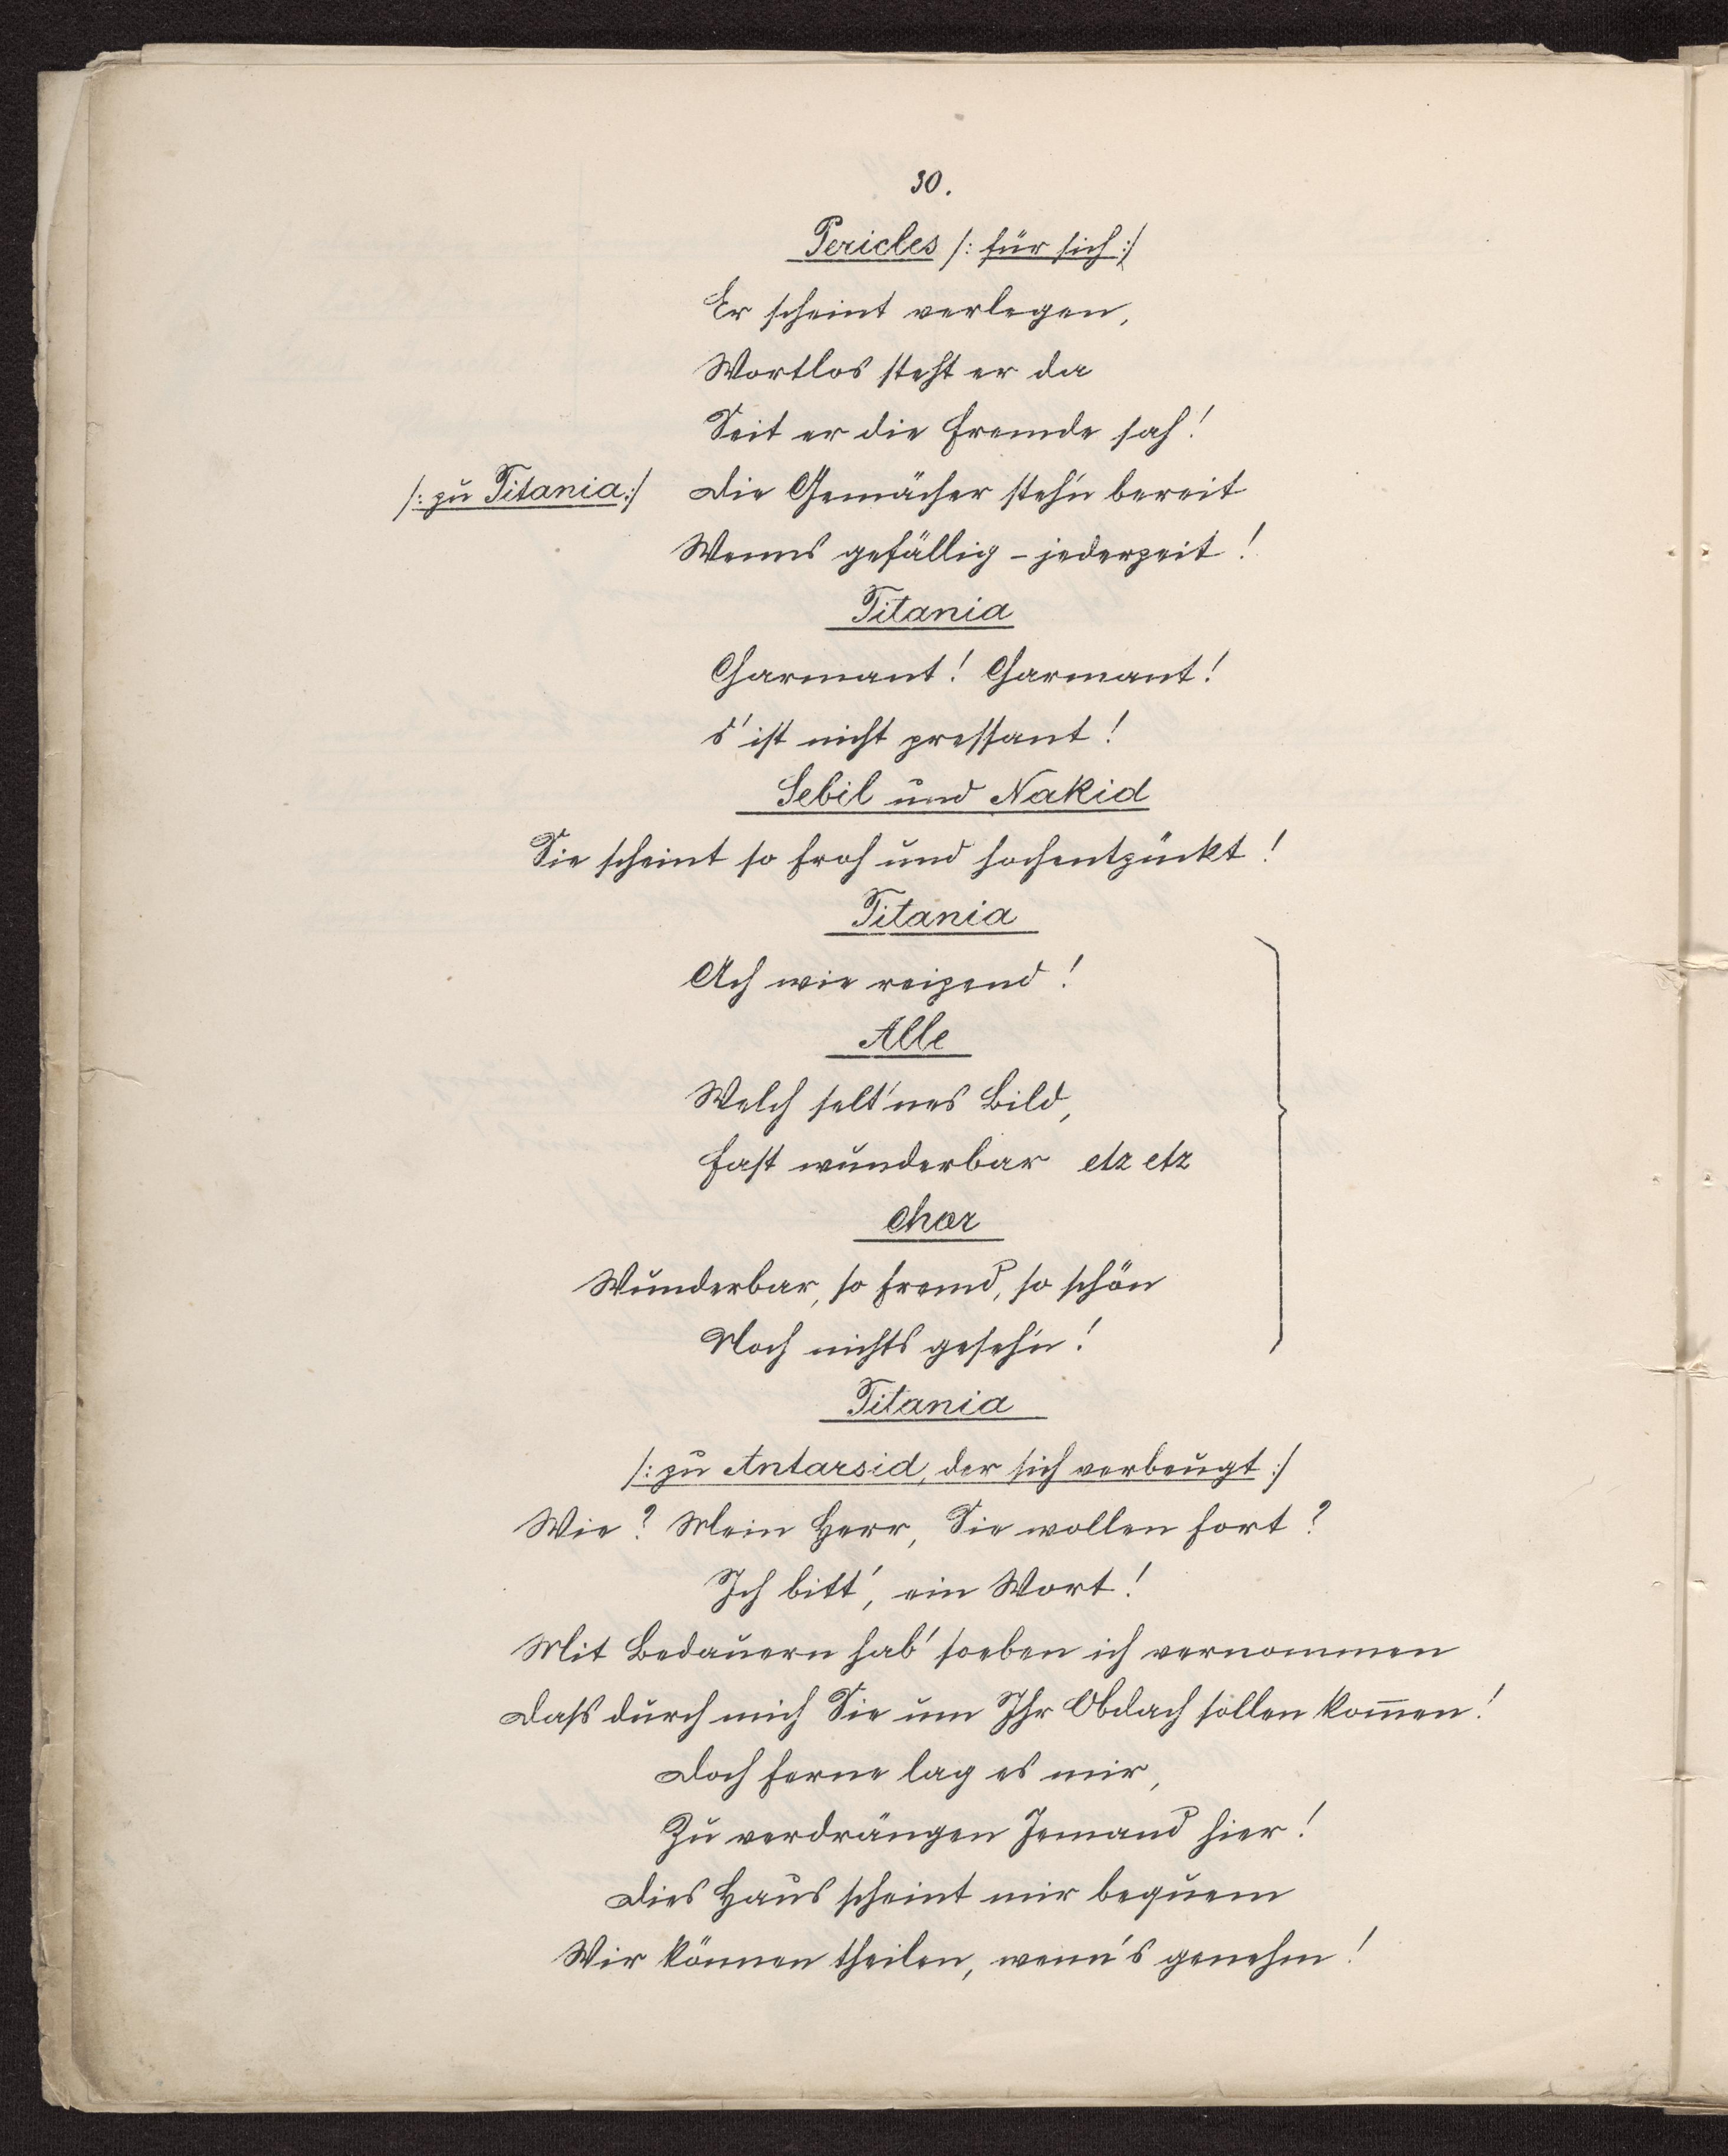 30.
Pericles /: für sich :/
Er scheint verlegen,
Wortlos steht er da
Seit er die Fremde sah!
/: zu Titania :/ Die Gemächer steh'n bereit
Wenns gefällig – jederzeit!
Titania
Charmant! Charmant!
s' ist nicht pressant!
Sebil und Nakid
Sie scheint so froh und hochentzückt!
Titania
Ach wie reizend!
Alle
Welch selt'nes Bild,
Fast wunderbar etz etz
Chor
Wunderbar, so fremd, so schön
Noch nichts geseh'n!
Titania
/: zu Antarsid, der sich verbeugt :/
Wie? Mein Herr, Sie wollen fort?
Ich bitt', ein Wort!
Mit Bedauern hab' soeben ich vernommen
Dass durch mich Sie um Ihr Obdach sollen kom̅en!
Doch ferne lag es mir,
Zu verdrängen Jemand hier!
Dies Haus scheint mir bequem
Wir können theilen, wenn's genehm!